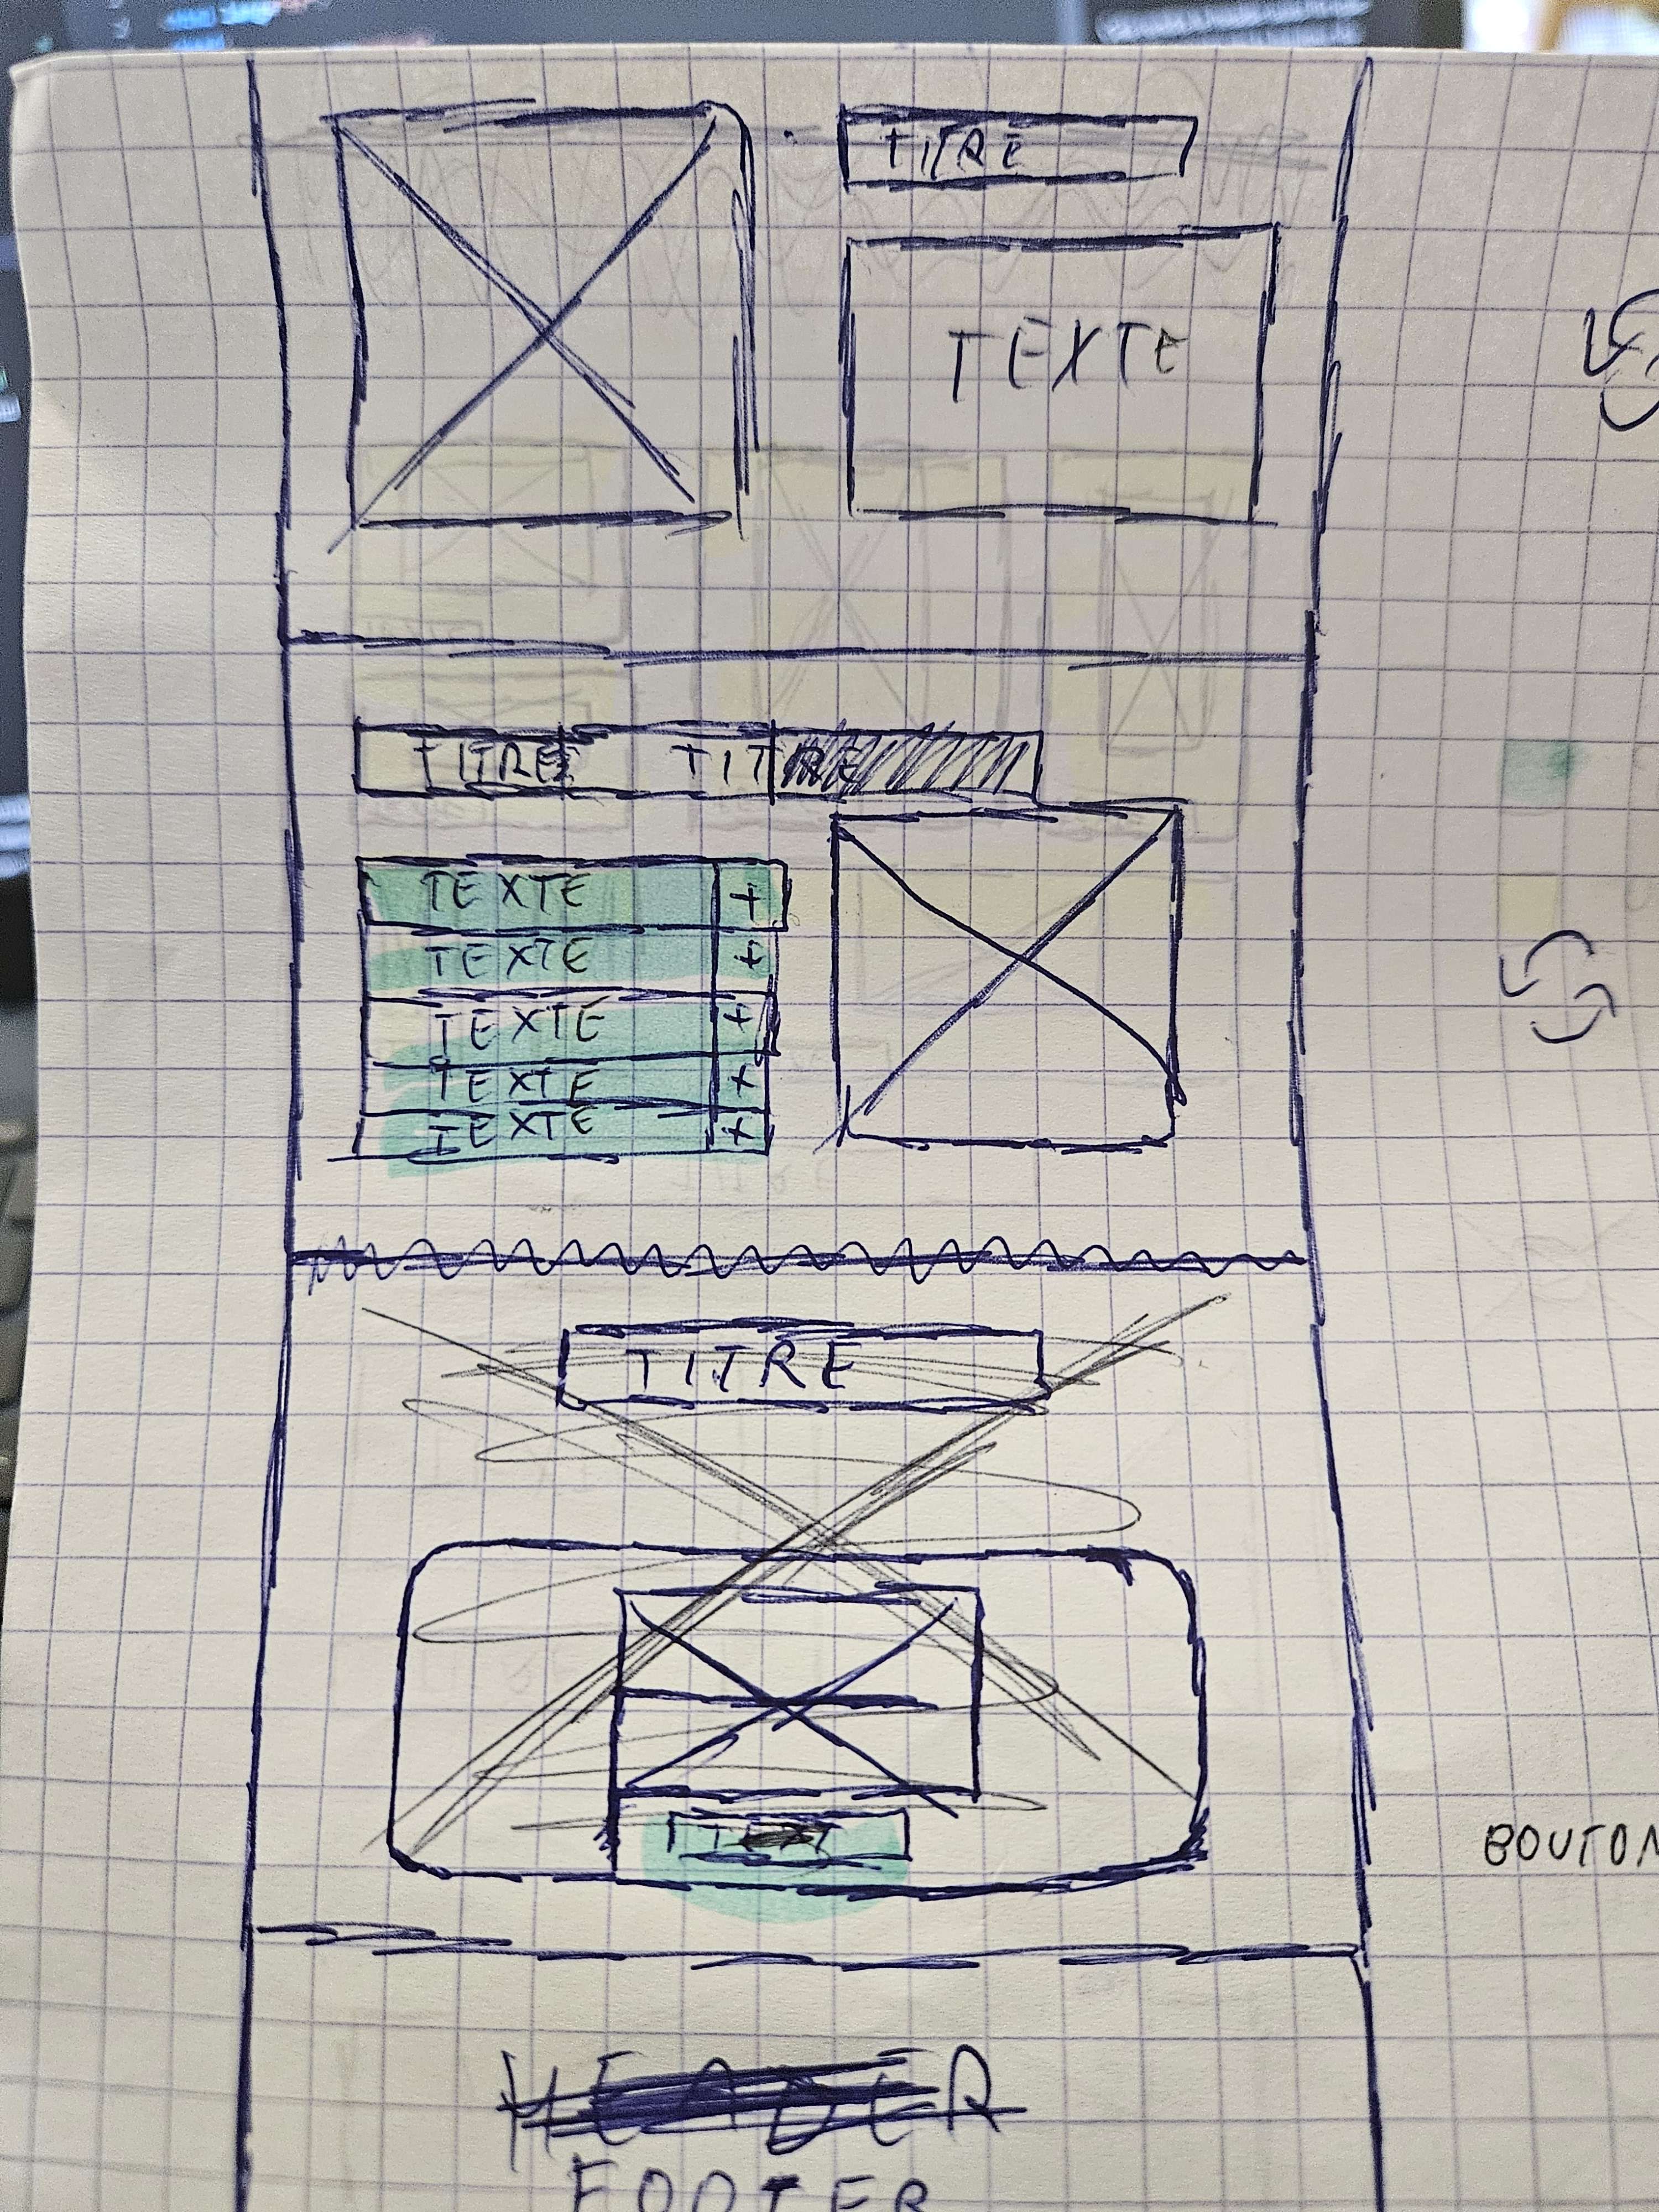 TITRE
TEXTE
TITRE TITRE
TEXTE +
TEXTE +
TEXTE +
TEXTE +
TEXTE +
TITRE
BOUTON
HEADER
FOOTER